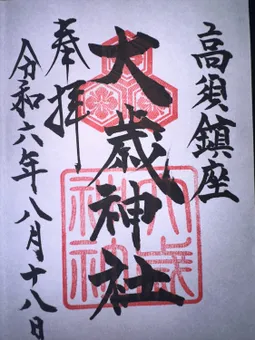 高須鎮座
大歳神社
奉拝
令和六年八月十八日
大歳
神社